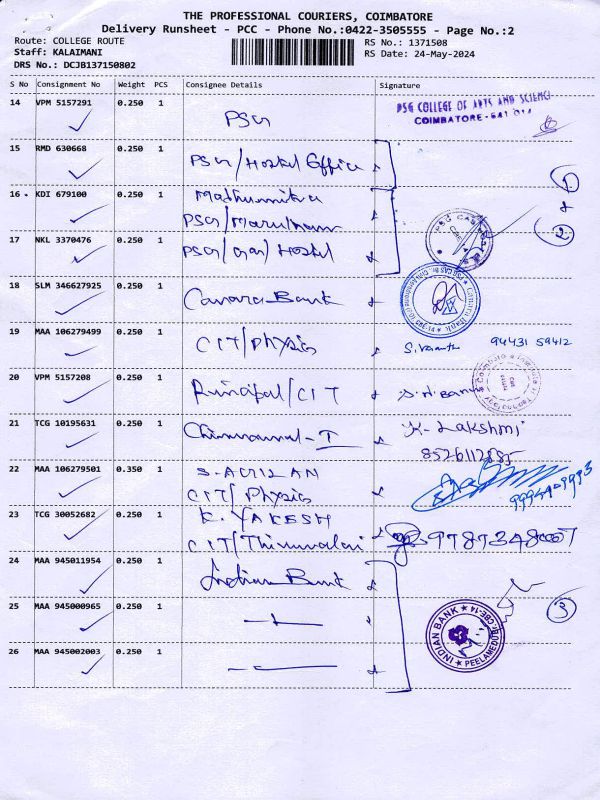 THE PROFESSIONAL COURIERS, COIMBATORE
Delivery Runsheet - PCC - Phone No.:0422-3505555 - Page No.:2
Route: COLLEGE ROUTE
Staff: KALAIMANI
DRS No.: DCJB137150802
RS No.: 1371508
RS Date: 24-May-2024
S No Consignment No Weight PCS Consignee Details Signature
14 VPM 5157291 0.250 1 PSG
PSG COLLEGE OF ARTS AND SCIENCE
COIMBATORE - 641 014
15 RMD 630668 0.250 1 PSG/Hostel Office
1
&
2
16 KDI 679100 0.250 1 Madhumitha
PSG/Marutham
17 NKL 3370476 0.250 1 PSG/ Hostel
18 SLM 346627925 0.250 1 Canara Bank
19 MAA 106279499 0.250 1 CIT/Physics 94431 59412
20 VPM 5157208 0.250 1 Principal/CIT
21 TCG 10195631 0.250 1 K. Lakshmi
22 MAA 106279501 0.350 1 S-AGILAN
CIT/Physics
23 TCG 30052682 0.250 1 K. YAKESH
CIT/
24 MAA 945011954 0.250 1 Indian Bank
25 MAA 945000965 0.250 1
3
INDIAN BANK
PEELAMEDU
26 MAA 945002003 0.250 1